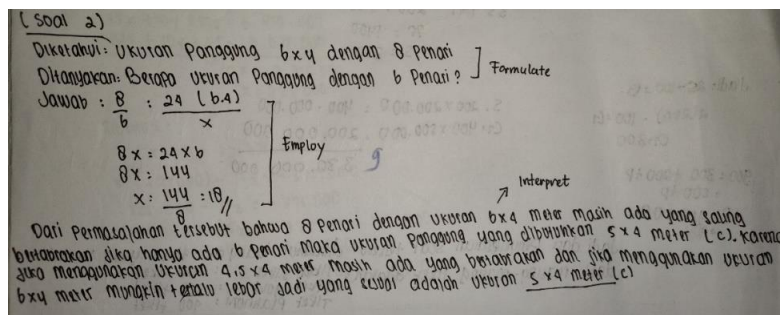 (Soal 2)
Diketahui: Ukuran Panggung 6x4 dengan 8 Penari
Ditanyakan: Berapa Ukuran Panggung dengan 6 Penari? ] Formulate
Jawab : 8/6 = 24 (6.4)/x
8x = 24 x 6
8x = 144
Employ
9
x = 144/8 = 18 //
Interpret
Dari Permasalahan tersebut bahwa 8 Penari dengan Ukuran 6x4 meter masih ada yang saling
bertabrakan jika hanya ada 6 Penari maka Ukuran Panggung yang dibutuhkan 5 x 4 meter (c). Karena
jika menggunakan Ukuran 4,5 x 4 meter masih ada yang bertabrakan dan jika menggunakan Ukuran
6x4 meter mungkin terlalu lebar jadi yang sesuai adalah Ukuran 5 x 4 meter (c)